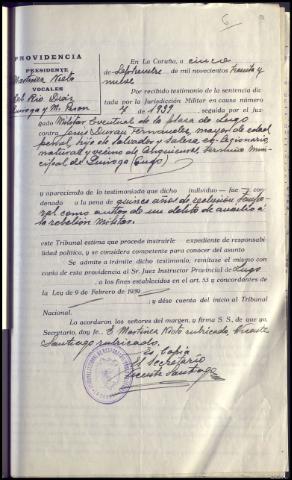 PROVIDENCIA
PRESIDENTE
Martinez Nieto
VOCALES
del Rio Diaz
Quiroga y M. Pison
En La Coruña, a cinco
de Septiembre de mil novecientos treinta y
nueve
Por recibido testimonio de la sentencia dic-
tada por la Jurisdicción Militar en causa número
4 de 1939, seguido por el Juz-
gado Militar Eventual de la plaza de Lugo
contra Jesus Duran Fernandez, mayor de edad
hijo de Salvador y ex-legionario
natural y vecino de termino mu-
nicipal de Quiroga (Lugo)
y apareciendo de lo testimoniado que dicho individuo fue con-
denado a la pena de quince años de reclusion tempo-
ral como autor de un delito de auxilio a
la rebelion militar.
este Tribunal estima que procede instruirle expediente de responsabi-
lidad político, y se considera competente para conocer del asunto
Se admite a trámite, dicho testimonio, remítase el mismo con
copia de esta providencia al Sr. Juez Instructor Provincial de Lugo
a los fines establecidos en el art. 53 y concordantes de
la Ley de 9 de Febrero de 1939
y déso cuenta del inicio al Tribunal
Nacional.
Lo acordaron los señores del margen, y firma S. S., de que yo,
Secretario, doy fe. E Martinez Nieto rubricado, Vicente
Santiago rubricado.
Es copia
El Secretario
Vicente Santiago